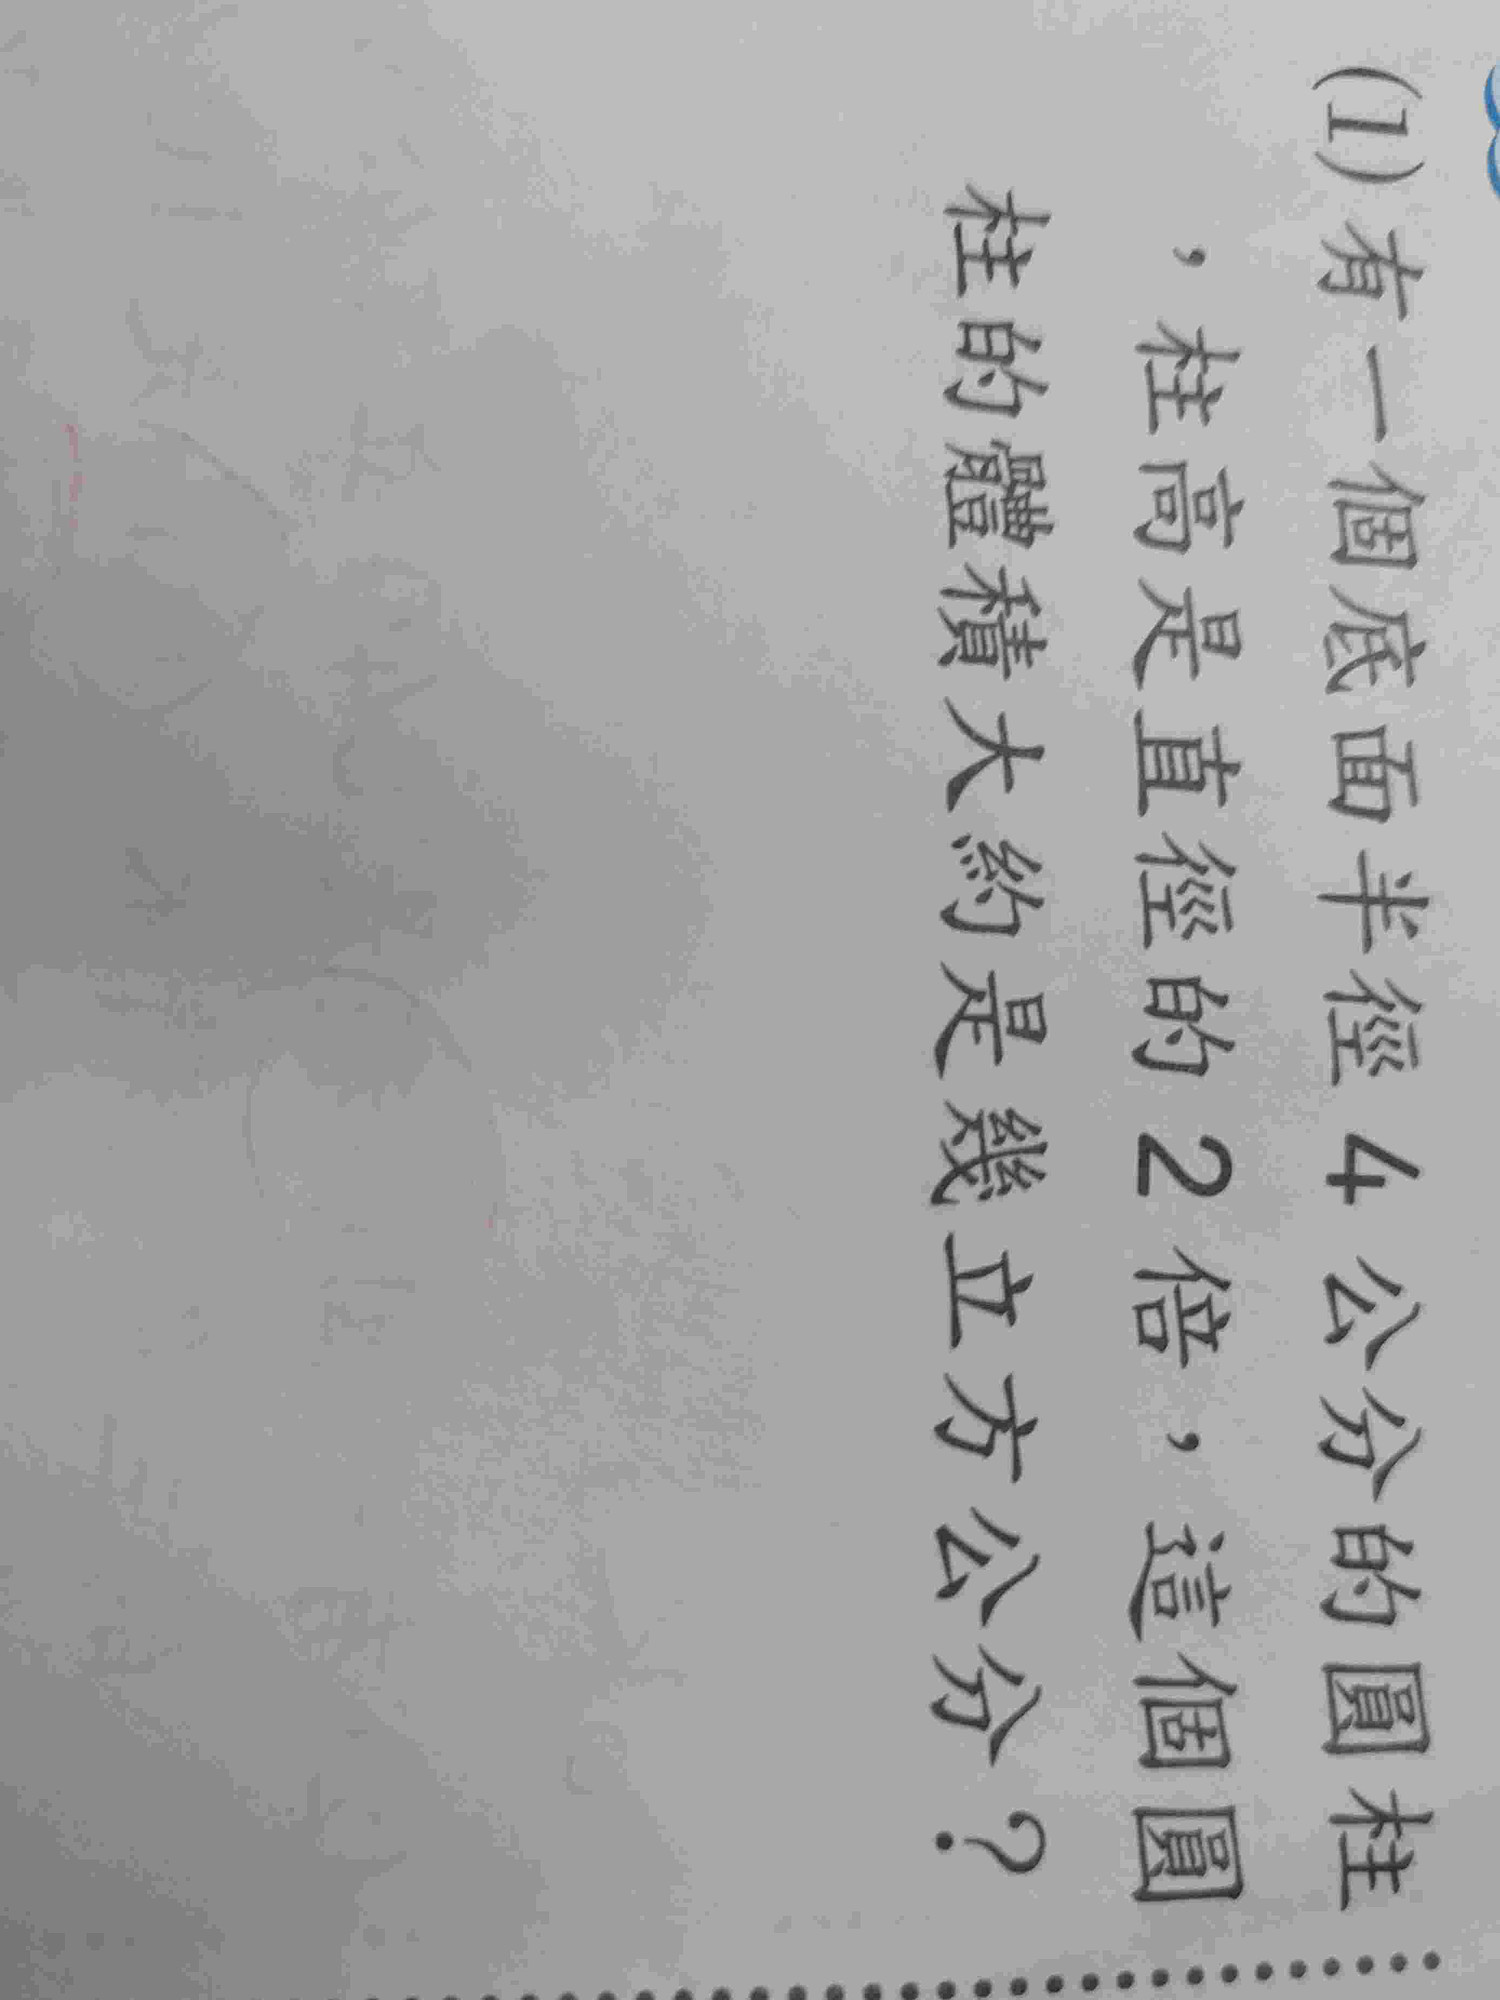 (1)有一個底面半徑 4 公分的圓柱
，柱高是直徑的 2 倍，這個圓
柱的體積大約是幾立方公分？